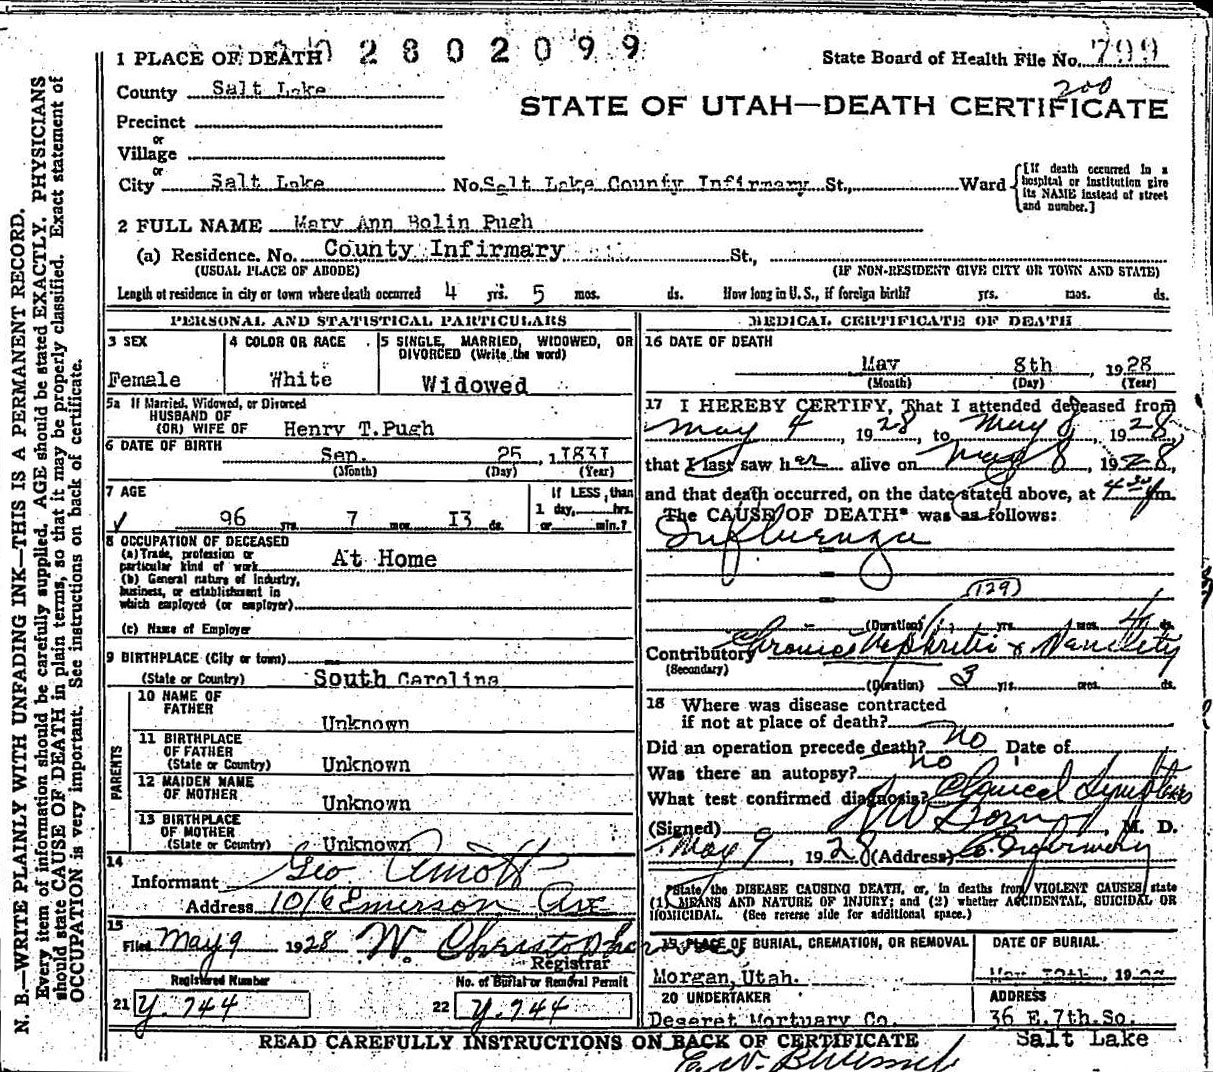 2802099
1 PLACE OF DEATH
State Board of Health File No. 799
200
County Salt Lake
STATE OF UTAH—DEATH CERTIFICATE
Precinct
or
Village
or
City Salt Lake No. Salt Lake County Infirmary St., Ward
[If death occurred in a hospital or institution give its NAME instead of street and number.]
2 FULL NAME Mary Ann Bolin Pugh
(a) Residence. No. County Infirmary St.,
(USUAL PLACE OF ABODE) (IF NON-RESIDENT GIVE CITY OR TOWN AND STATE)
Length of residence in city or town where death occurred 4 yrs. 5 mos. ds. How long in U. S., if foreign birth? yrs. mos. ds.
PERSONAL AND STATISTICAL PARTICULARS
3 SEX
Female
4 COLOR OR RACE
White
5 SINGLE, MARRIED, WIDOWED, OR
DIVORCED (Write the word)
Widowed
5a If Married, Widowed, or Divorced
HUSBAND OF
(OR) WIFE OF Henry T. Pugh
6 DATE OF BIRTH
Sep. 25, 1831
(Month) (Day) (Year)
7 AGE
96 yrs. 7 mos. 13 ds.
If LESS than
1 day, hrs.
or min.?
8 OCCUPATION OF DECEASED
(a) Trade, profession or
particular kind of work At Home
(b) General nature of industry,
business, or establishment in
which employed (or employer)
(c) Name of Employer
9 BIRTHPLACE (City or town)
(State or Country) South Carolina
PARENTS
10 NAME OF
FATHER Unknown
11 BIRTHPLACE
OF FATHER
(State or Country) Unknown
12 MAIDEN NAME
OF MOTHER Unknown
13 BIRTHPLACE
OF MOTHER
(State or Country) Unknown
14
Informant Geo. Arnott
Address 1016 Emerson Ave
15
Filed May 9 1928 W. Christopherson
Registrar
Registered Number
21 Y. 744
No. of Burial or Removal Permit
22 Y. 744
MEDICAL CERTIFICATE OF DEATH
16 DATE OF DEATH
May 8th, 1928
(Month) (Day) (Year)
17 I HEREBY CERTIFY, That I attended deceased from
May 4, 1928, to May 8, 1928,
that I last saw her alive on May 8, 1928,
and that death occurred, on the date stated above, at m.
The CAUSE OF DEATH* was as follows:
Influenza
(129)
(Duration) yrs. mos. 4 ds.
Contributory Chronic Nephritis &
(Secondary)
(Duration) 3 yrs. mos. ds.
18 Where was disease contracted
if not at place of death?
Did an operation precede death? no Date of
Was there an autopsy? no
What test confirmed diagnosis? Clinical Symptoms
(Signed) M. D.
May 9, 1928 (Address) Co. Infirmary
*State the DISEASE CAUSING DEATH, or, in deaths from VIOLENT CAUSES state
(1) MEANS AND NATURE OF INJURY; and (2) whether ACCIDENTAL, SUICIDAL OR
HOMICIDAL. (See reverse side for additional space.)
19 PLACE OF BURIAL, CREMATION, OR REMOVAL
Morgan, Utah.
DATE OF BURIAL
May 19
20 UNDERTAKER
Deseret Mortuary Co.
ADDRESS
36 E. 7th. So.
Salt Lake
READ CAREFULLY INSTRUCTIONS ON BACK OF CERTIFICATE
N. B.—WRITE PLAINLY WITH UNFADING INK—THIS IS A PERMANENT RECORD.
Every item of information should be carefully supplied. AGE should be stated EXACTLY. PHYSICIANS
should state CAUSE OF DEATH in plain terms, so that it may be properly classified. Exact statement of
OCCUPATION is very important. See instructions on back of certificate.